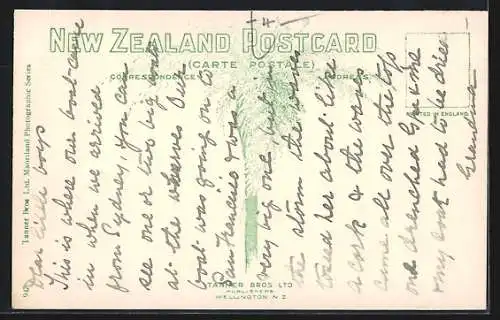 NEW ZEALAND POSTCARD
(CARTE POSTALE)
CORRESPONDENCE
ADDRESS
PRINTED IN ENGLAND
Tanner Bros Ltd. Maoriland Photographic Series
TANNER BROS LTD
PUBLISHERS
WELLINGTON N.Z
Dear little boys
This is where our boat came
in when we arrived
from Sydney, you can
see one or two big boats
at the wharves. Our
boat was going on to
San Francisco & was a
very big one, but in
the storm the waves
tossed her about like
a cork & the waves
came all over the top
one drenched Gran & me
my coat had to be dried
Grandma